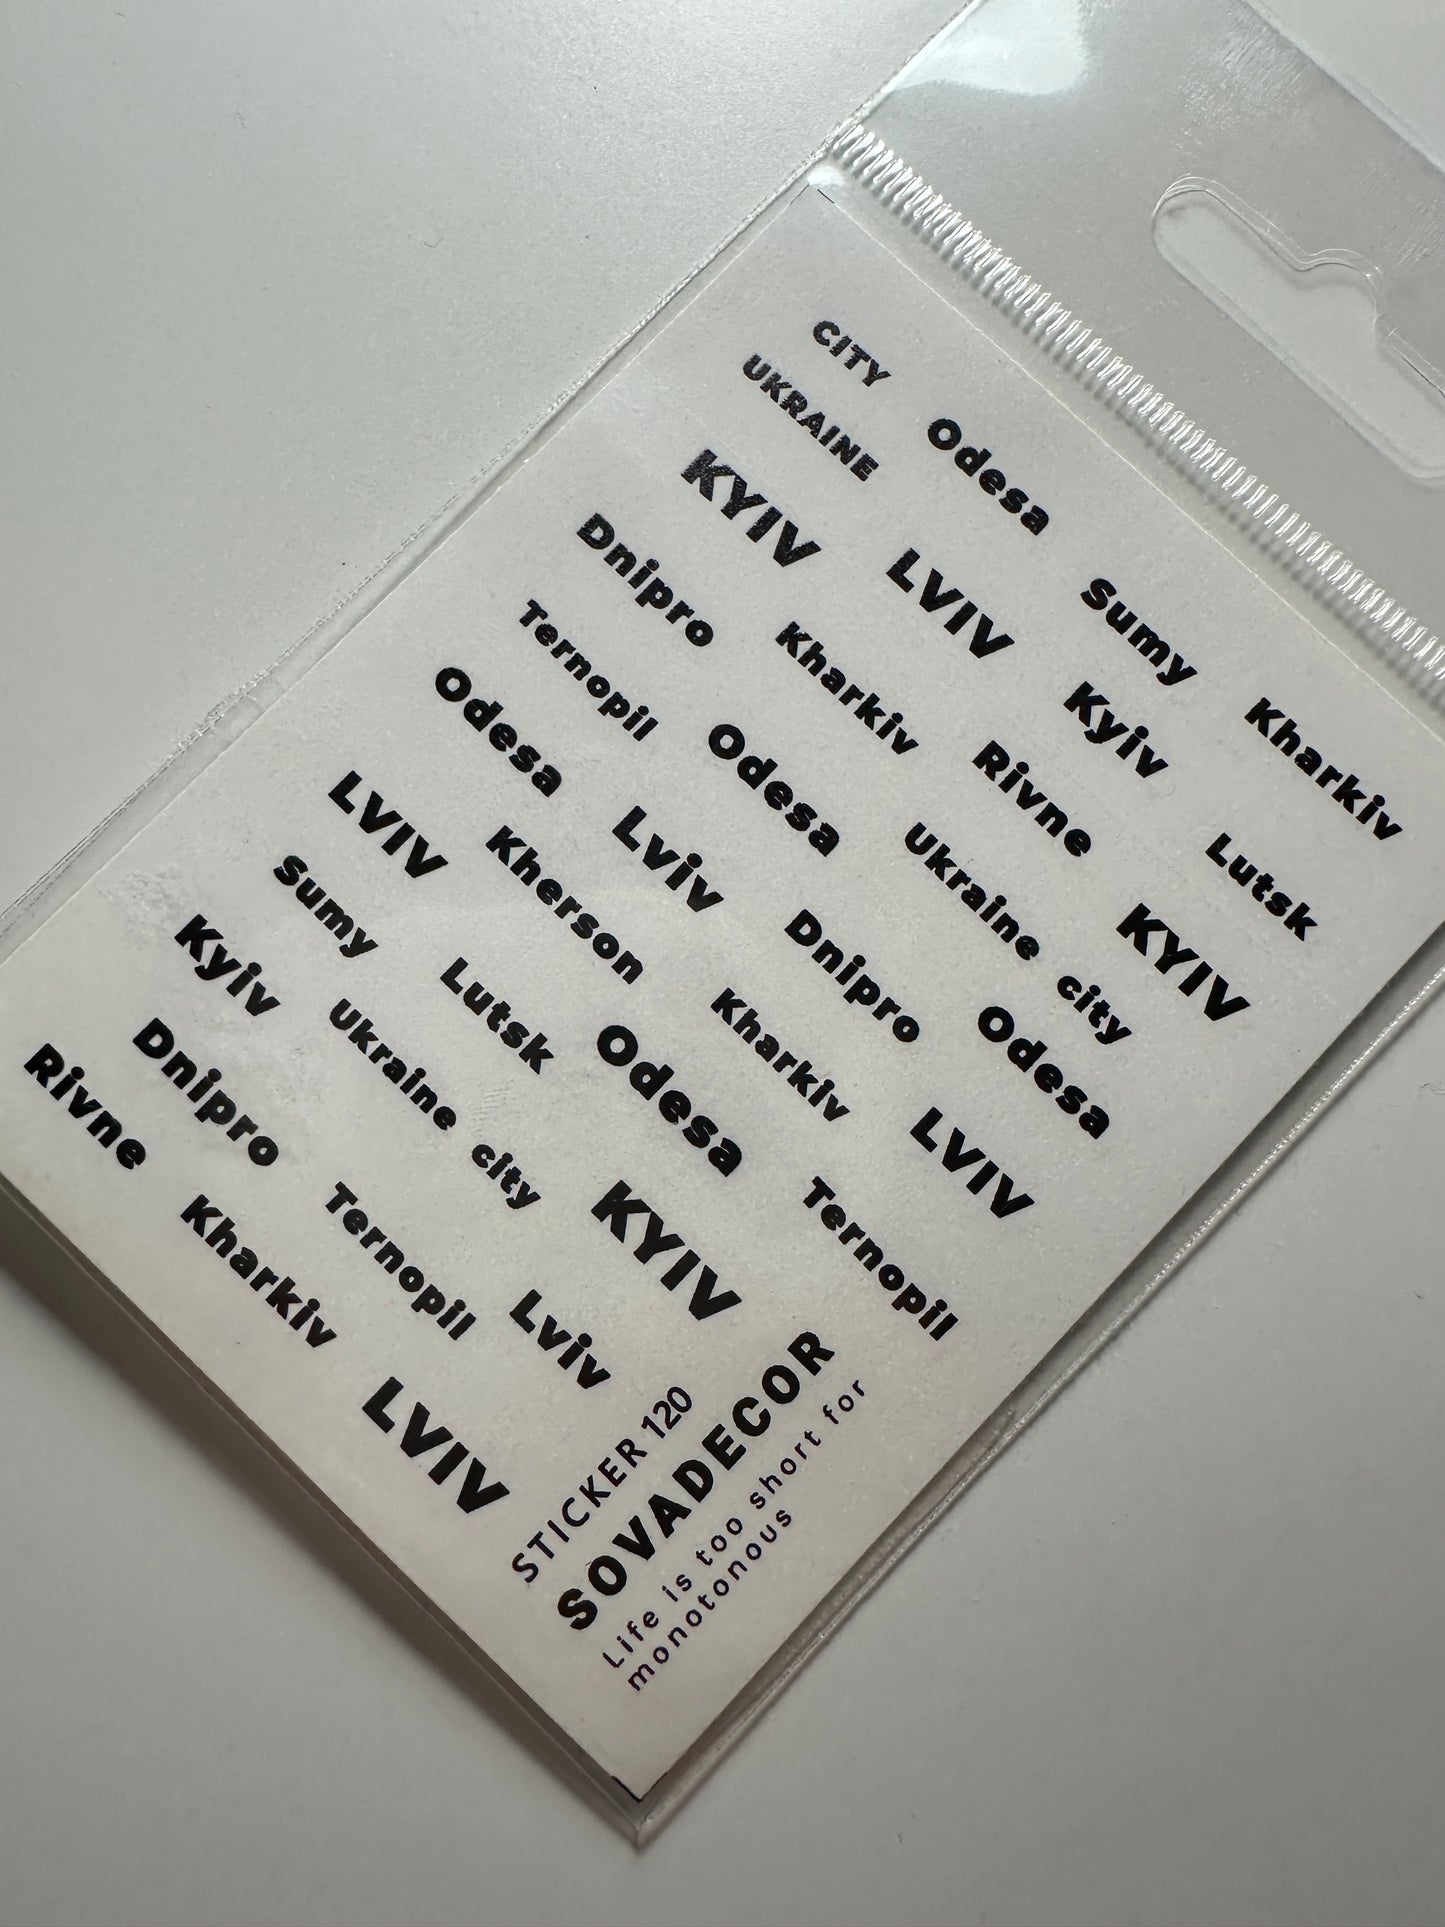 CITY
UKRAINE
Odesa
KYIV
LVIV
Sumy
Kharkiv
Dnipro
Kharkiv
Kyiv
Ternopil
Rivne
Lutsk
Odesa
Odesa
Ukraine city
KYIV
LVIV
Lviv
Dnipro
Odesa
Sumy
Kherson
Kharkiv
LVIV
Kyiv
Lutsk
Odesa
Ternopil
Ukraine city
Dnipro
KYIV
Rivne
Ternopil
Lviv
Kharkiv
LVIV
STICKER 120
SOVADECOR
Life is too short for
monotonous